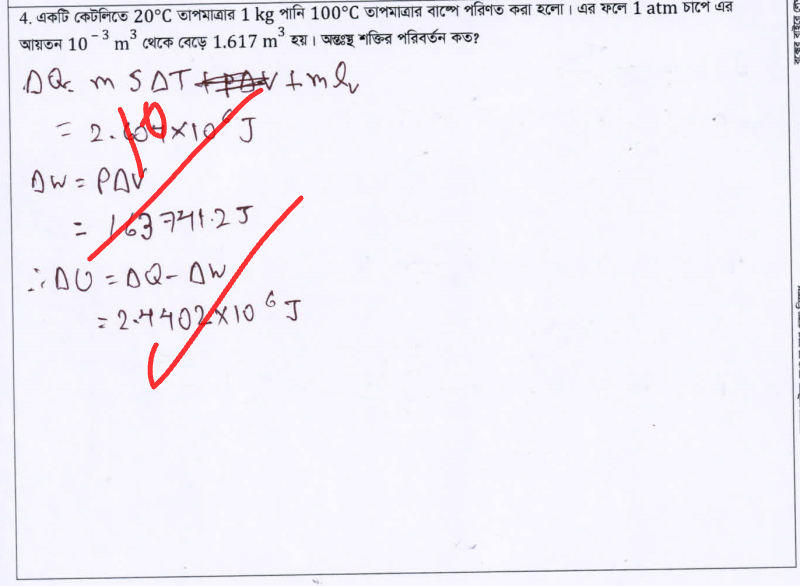 4. একটি কেটলিতে 20°C তাপমাত্রার 1 kg পানি 100°C তাপমাত্রার বাষ্পে পরিণত করা হলো। এর ফলে 1 atm চাপে এর
আয়তন 10⁻³ m³ থেকে বেড়ে 1.617 m³ হয়। অন্তঃস্থ শক্তির পরিবর্তন কত?
ΔQ = m S ΔT + m lv
= 2.604×10⁶ J
10
ΔW = PΔV
= 163741.2 J
∴ ΔU = ΔQ − ΔW
= 2.4402×10⁶ J